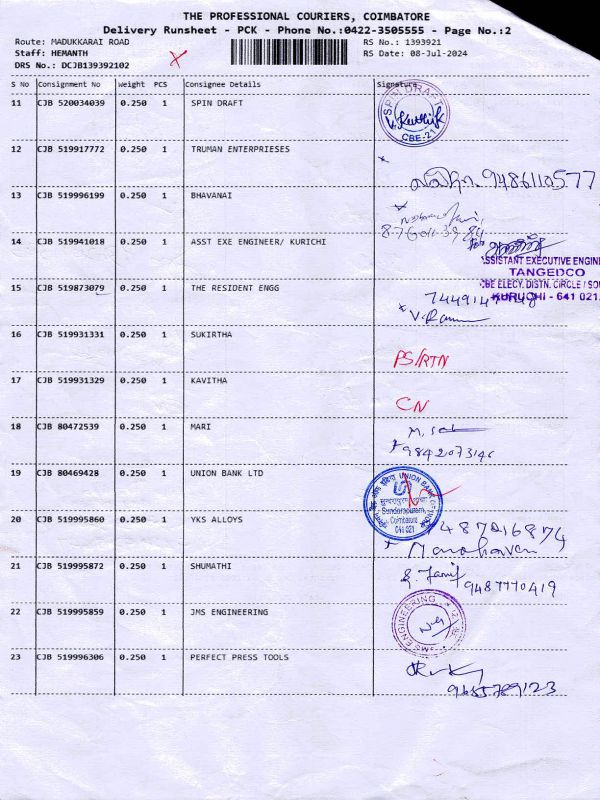 THE PROFESSIONAL COURIERS, COIMBATORE
Delivery Runsheet - PCK - Phone No.:0422-3505555 - Page No.:2
Route: MADUKKARAI ROAD RS No.: 1393921
Staff: HEMANTH RS Date: 08-Jul-2024
DRS No.: DCJB139392102
S No Consignment No Weight PCS Consignee Details Signature
11 CJB 520034039 0.250 1 SPIN DRAFT
SPIN DRAFT
CBE-21
12 CJB 519917772 0.250 1 TRUMAN ENTERPRIESES
9486110577
13 CJB 519996199 0.250 1 BHAVANAI
14 CJB 519941018 0.250 1 ASST EXE ENGINEER/ KURICHI
ASSISTANT EXECUTIVE ENGINE
TANGEDCO
CBE ELECY. DISTN. CIRCLE / SOU
KURUCHI - 641 021
15 CJB 519873079 0.250 1 THE RESIDENT ENGG
16 CJB 519931331 0.250 1 SUKIRTHA
PS/RTN
17 CJB 519931329 0.250 1 KAVITHA
CN
18 CJB 80472539 0.250 1 MARI
19 CJB 80469428 0.250 1 UNION BANK LTD
UNION BANK OF INDIA
Sundarapuram,
Coimbatore
641 021
20 CJB 519995860 0.250 1 YKS ALLOYS
7487216874
21 CJB 519995872 0.250 1 SHUMATHI
9487770419
22 CJB 519995859 0.250 1 JMS ENGINEERING
JMS ENGINEERING
23 CJB 519996306 0.250 1 PERFECT PRESS TOOLS
9655789123